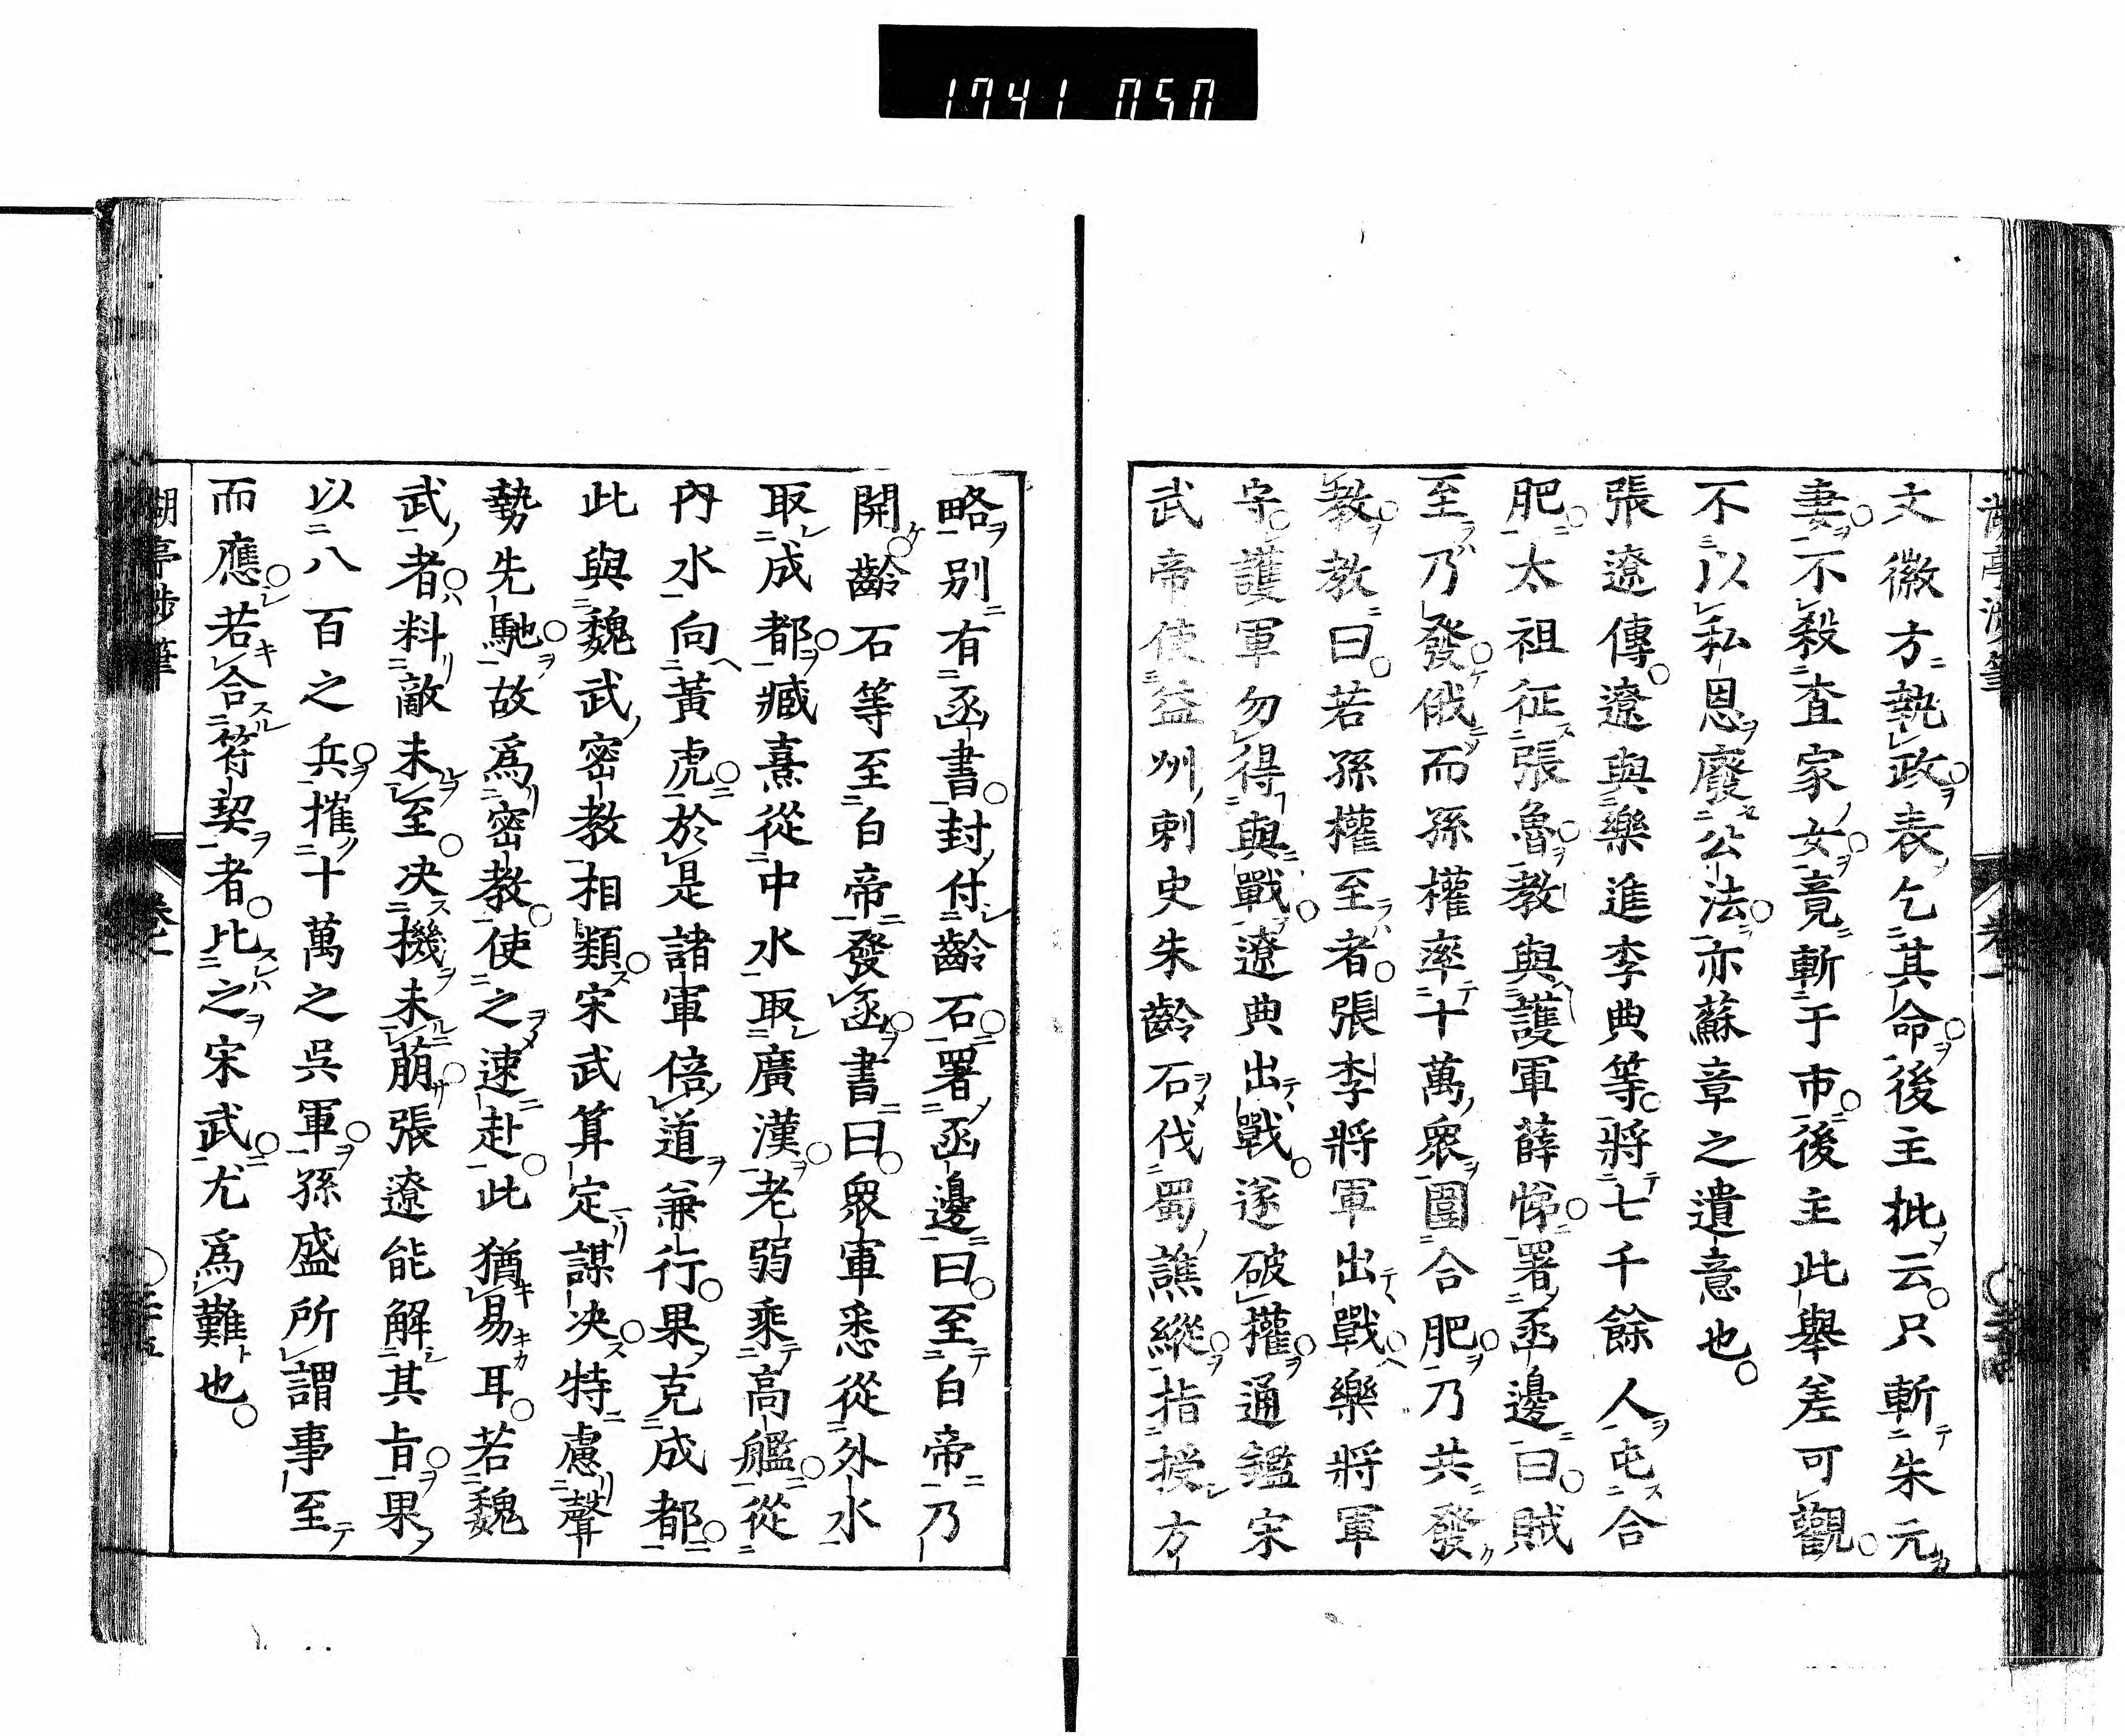 1741 050
文徽方執政表乞其命後主批云只斬朱元
妻不殺査家女竟斬于市後主此舉差可觀
不以私恩廢公法亦蘇章之遺意也
張遼傳遼與樂進李典等將七千餘人屯合
肥太祖征張魯教與護軍薛悌署函邊曰賊
至乃發俄而孫權率十萬衆圍合肥乃共發
教教曰若孫權至者張李將軍出戰樂將軍
守護軍勿得與戰遼典出戰遂破權通鑑宋
武帝使益州刺史朱齡石伐蜀譙縱指授方
略別有函書封付齡石署函邊曰至白帝乃
開齡石等至白帝發函書曰衆軍悉從外水
取成都臧熹從中水取廣漢老弱乘高艦從
內水向黃虎於是諸軍倍道兼行果克成都
此與魏武密教相類宋武算定謀決特慮聲
勢先馳故爲密教使之速赴此猶易耳若魏
武者料敵未至决機未萠張遼能解其旨果
以八百之兵摧十萬之吳軍孫盛所謂事至
而應若合符契者比之宋武尤爲難也